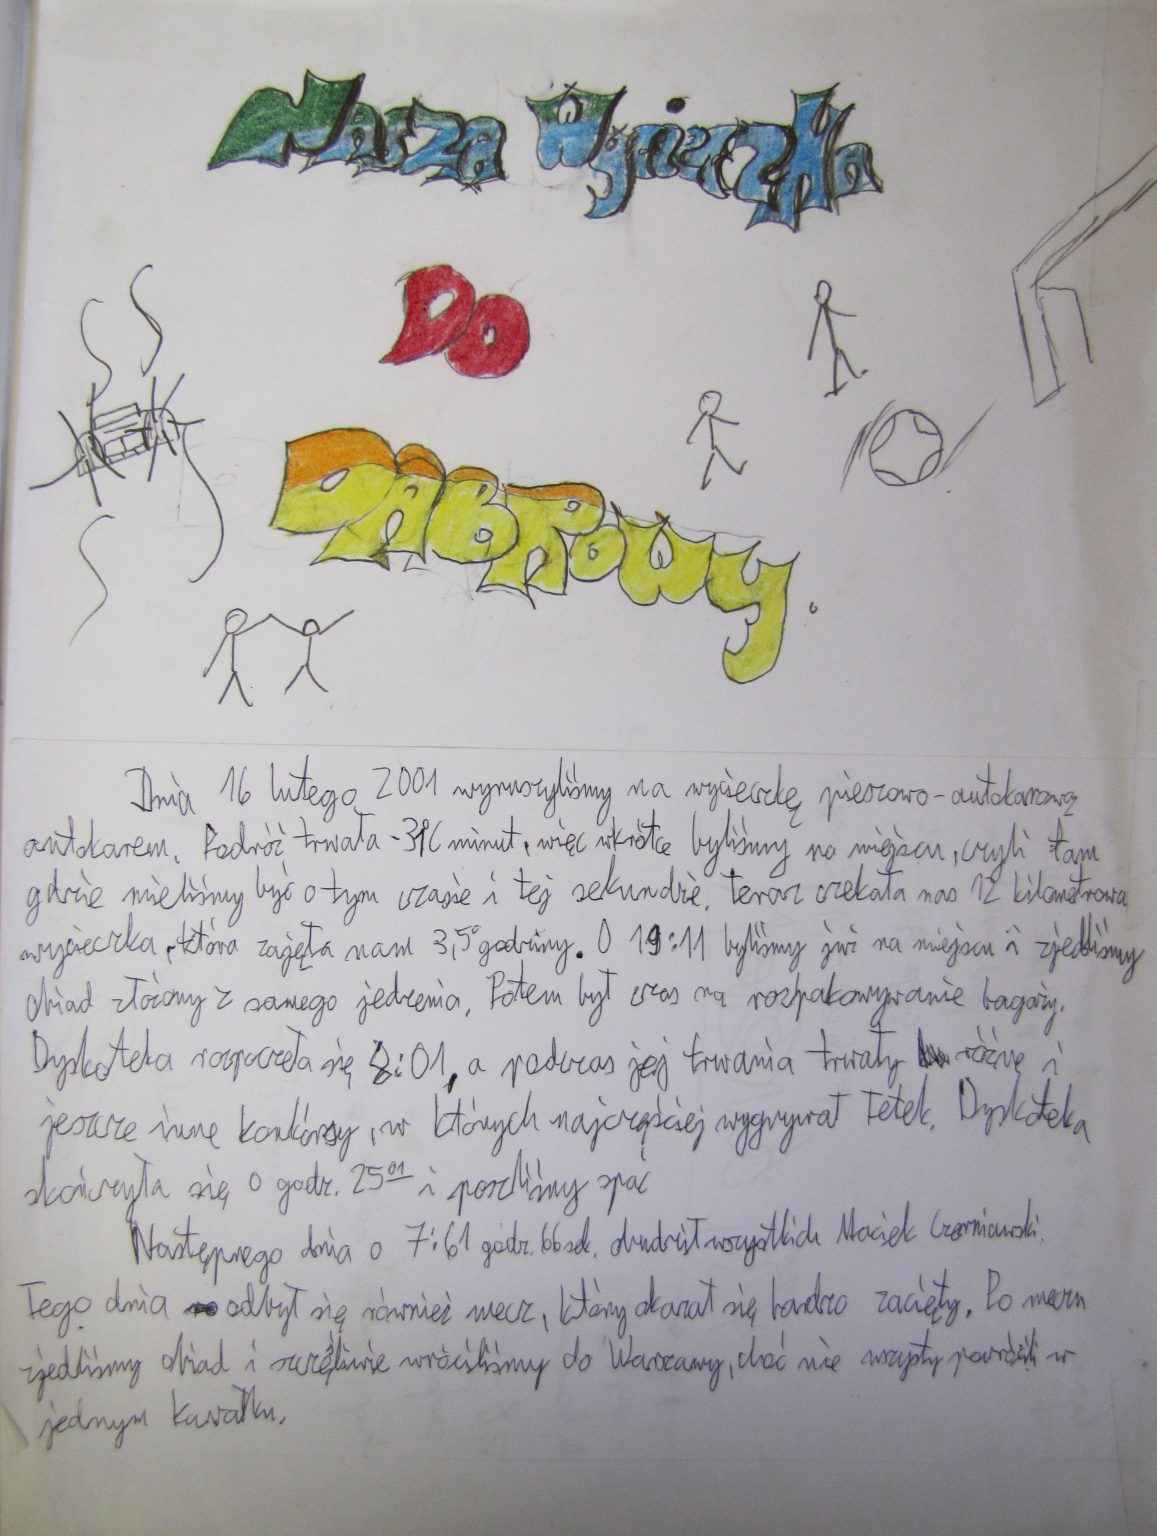 Nasza Wycieczka
DO
DĄBROWY.
Dnia 16 lutego 2001 wyruszyliśmy na wycieczkę pieszowo-autokarową
autokarem. Podróż trwała minut, więc wkrótce byliśmy na miejscu, czyli tam
gdzie mieliśmy być o tym czasie i tej sekundzie. Teraz czekała nas 12 kilometrowa
wycieczka, która zajęła nam 3,5 godziny. O 19:11 byliśmy już na miejscu i zjedliśmy
obiad złożony z samego jedzenia. Potem był czas na rozpakowywanie bagaży.
Dyskoteka rozpoczęła się 8:01, a podczas jej trwania trwały różne i
jeszcze inne konkórsy, w których najczęściej wygrywał Tetek. Dyskoteka
skończyła się o godz. 25 01 i poszliśmy spać
Następnego dnia o 7:61 godz. 66 sek. obudził wszystkich Maciek Czerniawski.
Tego dnia odbył się również mecz, który okazał się bardzo zacięty. Po meczu
zjedliśmy obiad i szczęśliwie wróciliśmy do Warszawy, choć nie wszyscy powrócili w
jednym kawałku.